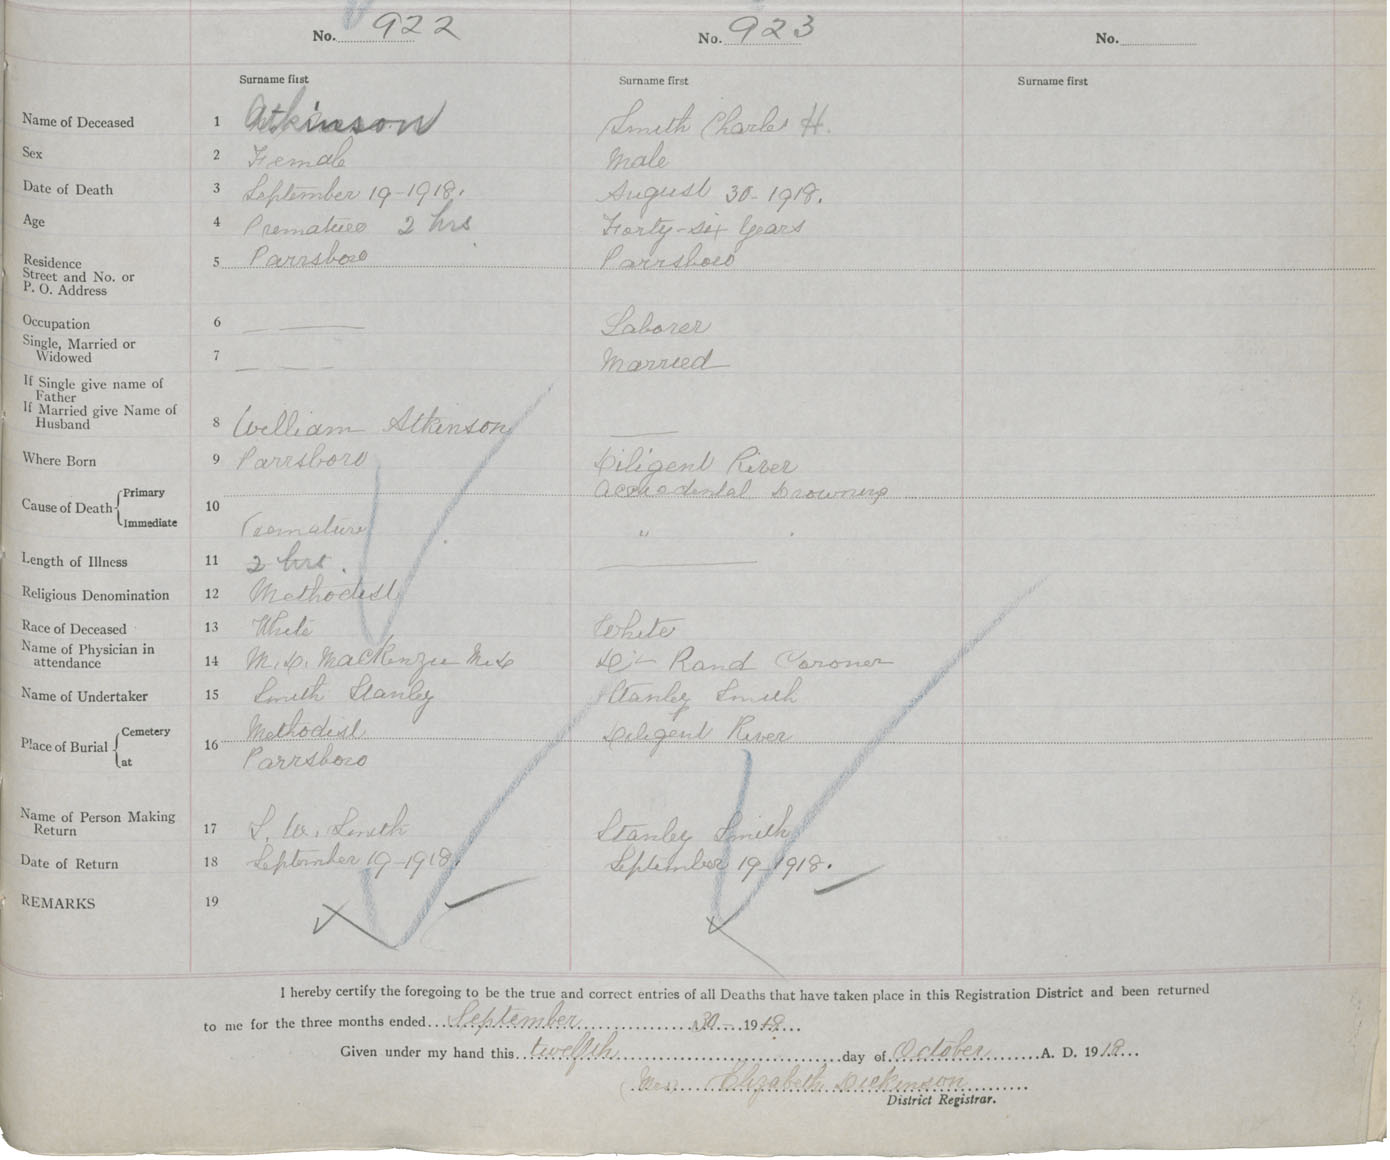 No. 922 No. 923 No.
Surname first Surname first Surname first
Name of Deceased 1 Atkinson Smith Charles H.
Sex 2 Female Male
Date of Death 3 September 19-1918. August 30-1918.
Age 4 Premature 2 hrs Forty-six years
Residence
Street and No. or
P. O. Address 5 Parrsboro Parrsboro
Occupation 6 — —— Laborer
Single, Married or
Widowed 7 — — — Married
If Single give name of
Father
If Married give Name of
Husband 8 William Atkinson ——
Where Born 9 Parrsboro Diligent River
Cause of Death Primary 10 Accidental Drowning
Immediate Premature "
Length of Illness 11 2 hrs. ——
Religious Denomination 12 Methodist
Race of Deceased 13 White White
Name of Physician in
attendance 14 M.D. MacKenzie M.D Dr Rand Coroner
Name of Undertaker 15 Smith Stanley Stanley Smith
Place of Burial Cemetery 16 Methodist Diligent River
at Parrsboro
Name of Person Making
Return 17 S. W. Smith Stanley Smith
Date of Return 18 September 19-1918. September 19 1918.
REMARKS 19
I hereby certify the foregoing to be the true and correct entries of all Deaths that have taken place in this Registration District and been returned
to me for the three months ended September 30- 1918
Given under my hand this twelfth day of October A. D. 1918
(Mrs) Elizabeth Dickinson
District Registrar.